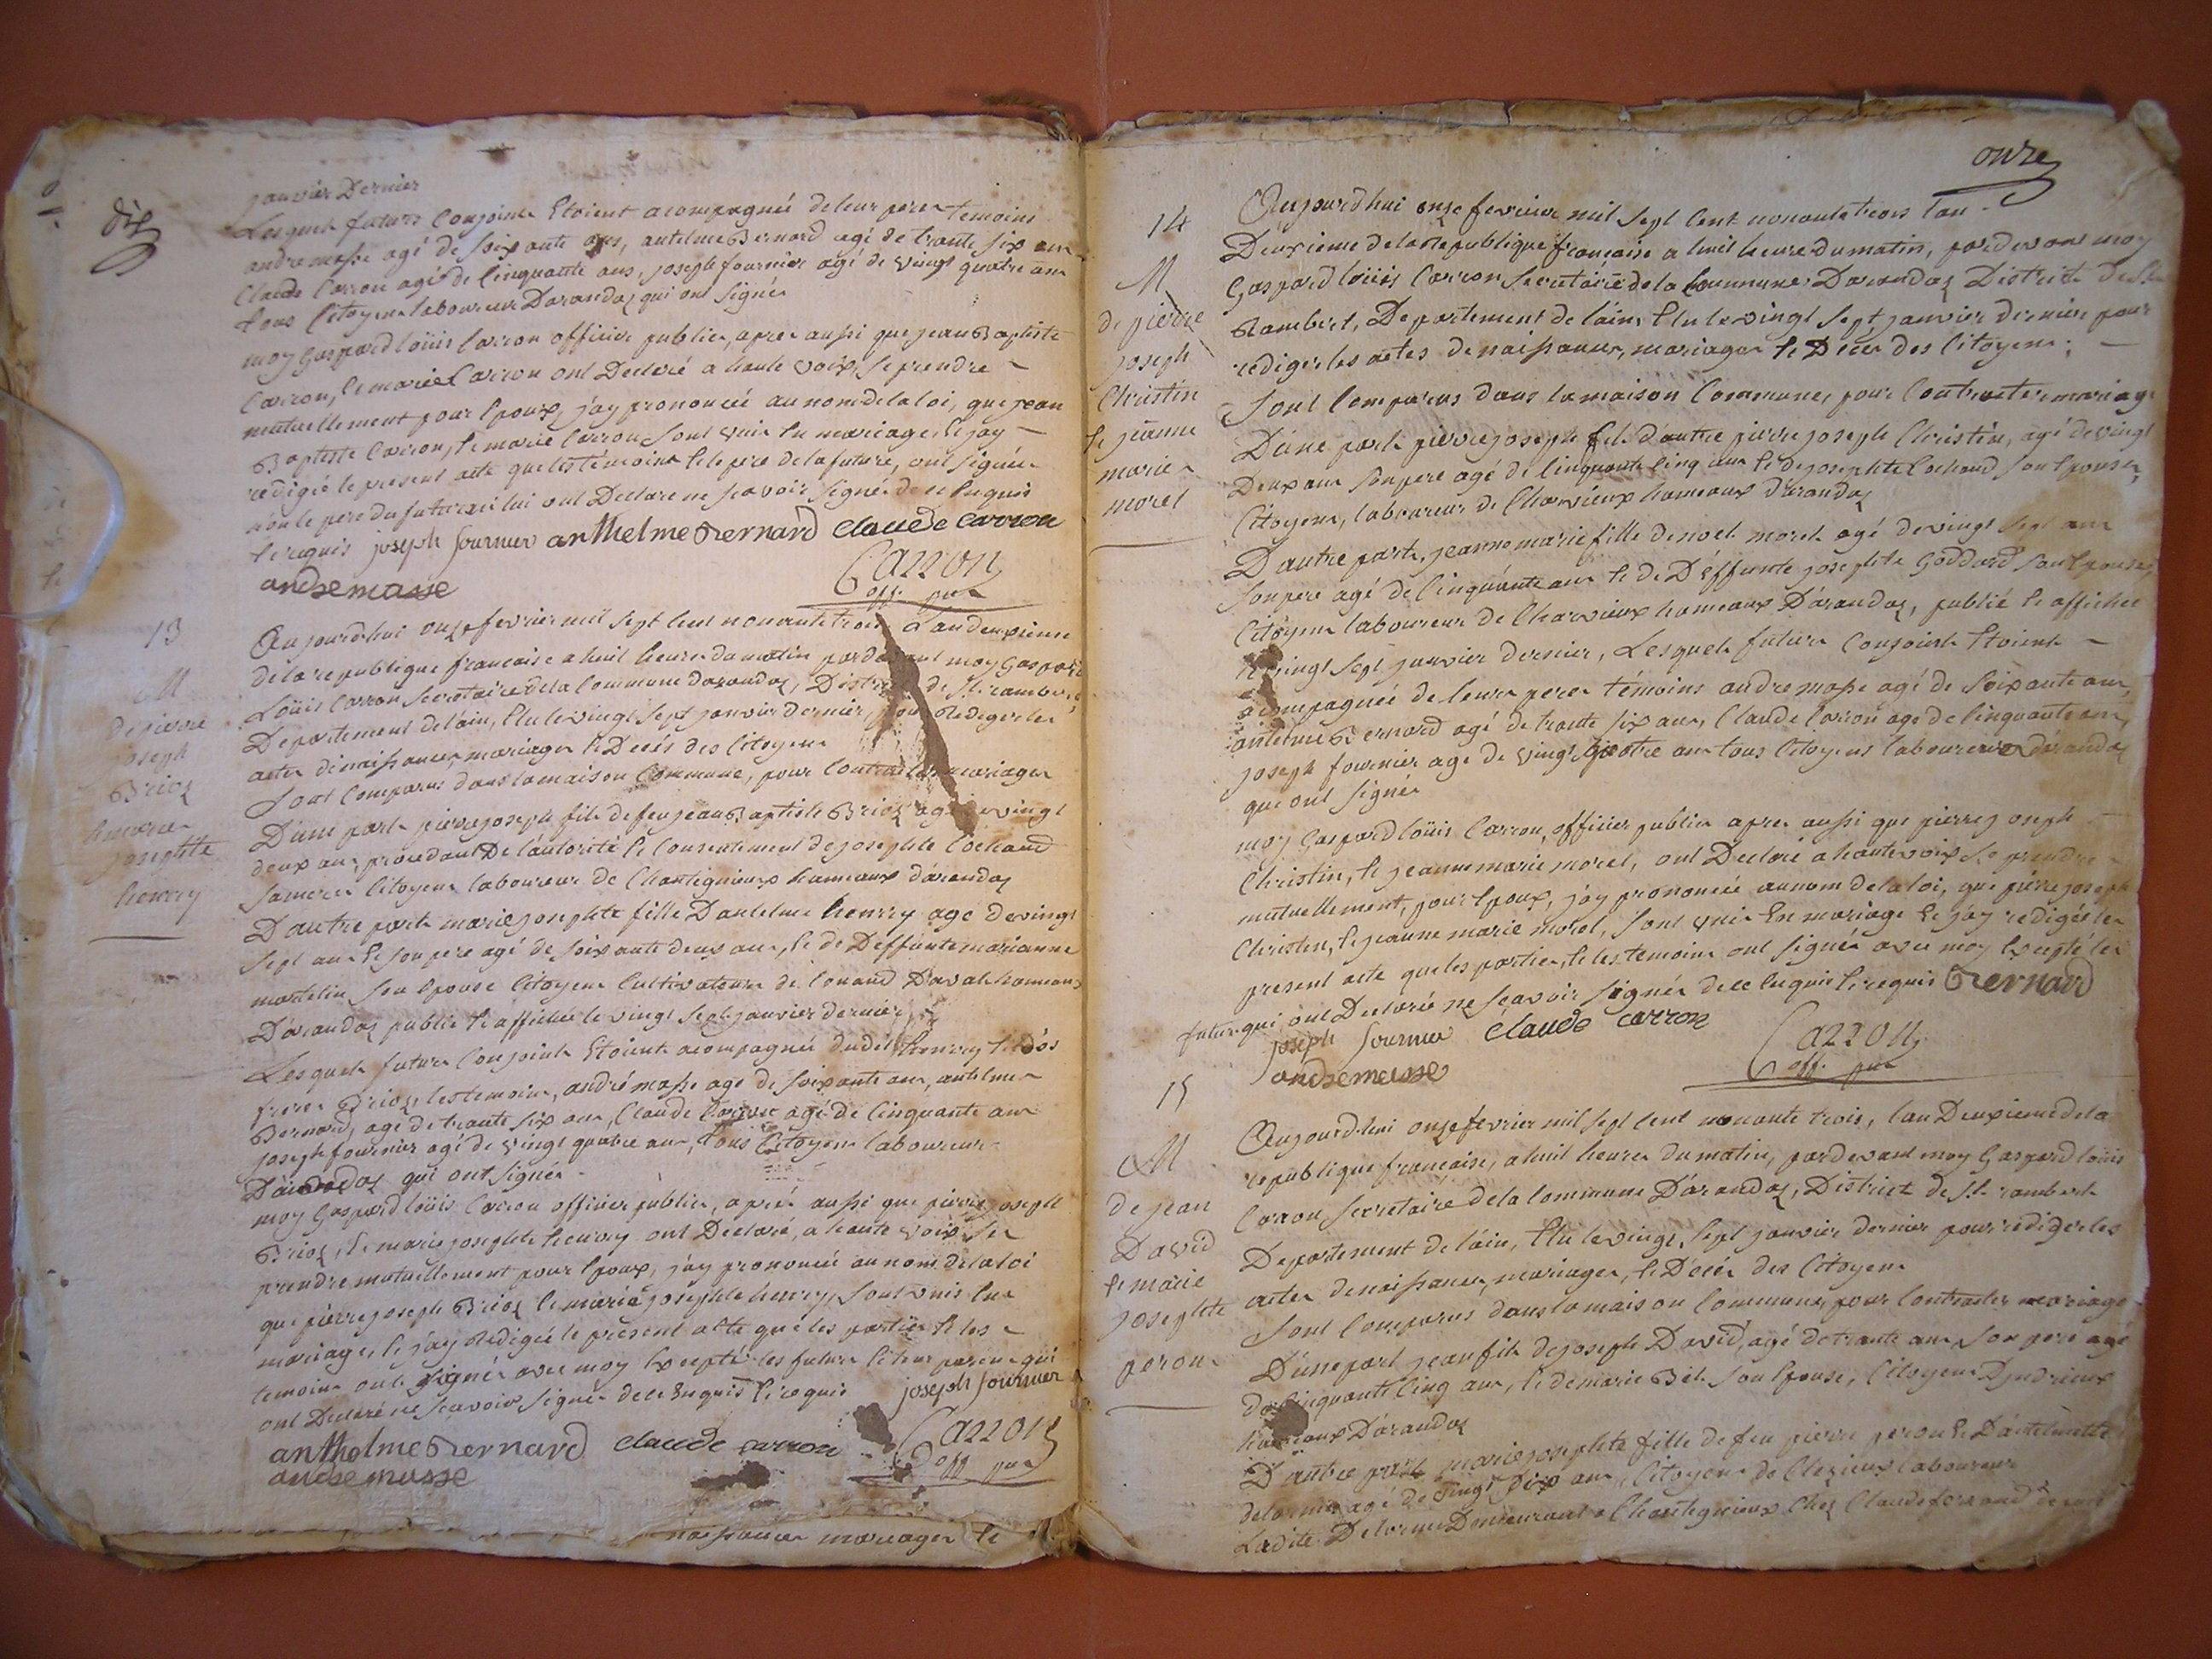 dix
janvier Dernier
Lesquels futurs Conjoints Etoient acompagné de leur peres temoins
andre masse agé de soixante ans, antelme Bernard agé de trante six ans
Claude Carron agé de Cinquante ans, joseph fournier agé de vingt quatre ans
tous Citoyens laboureurs Darandaz qui ont signés
moy Gaspard loüis Carron officier public, apres aussi que jean Baptiste
Carron, et marie Carron ont Declaré a haute voix, se prendre
mutuellement pour Epoux, j'ay prononcé au nom de la loi, que jean
Baptiste Carron, et marie Carron sont unis En mariage, et j'ay
redigé le present acte que les témoins et le pere de la future, ont signés
non le pere du futur ni lui ont Declare ne scavoir signés de ce Enquis
et requis joseph fournier anthelme Bernard claude carron
andre masse Carron
off. pu
13
M
de pierre
joseph
Brioz
et marie
josephte
henrry
Aujourdhui onze fevrier mil sept Cent nonante trois Lan deuxieme
de la republique francaise a huit heures du matin pardevant moy Gaspard
Loüis Carron Secretaire de la Commune darandaz, District de St. rambert
Departement de l'ain, Elu le vingt Sept janvier dernier, pour Rediger les
actes de naissances, mariages et Decés des Citoyens
Sont Comparus dans la maison Commune, pour Contracter mariages
D'une part pierre joseph fils de feu jean Baptiste Brioz agé de vingt
deux ans, procedant De l'autorité et Consentement de josephte Cochand
sa mere Citoyens laboureurs de Chantignieux hameaux d'arandaz
D'autre part marie josephte fille D'antelme henrry agé de vingt
sept ans Et son pere agé de soixante deux ans, Et de Deffunte marianne
martelin son Epouse Citoyens Cultivateurs de Conand Daval hameaux
D'arandaz publié Et affiché le vingt sept janvier dernier
Lesquels futurs Conjoints Etoient acompagné dudit henrry et dos
freres Brioz, les temoins, andré masse agé de soixante ans, antelme
Bernard, agé de trante six ans, Claude Carron agé de Cinquante ans
joseph fournier agé de vingt quatre ans, tous Citoyens laboureurs
D'arandaz qui ont signés
moy Gaspard loüis Carron officier public, aprés aussi que pierre joseph
Brioz, Et marie josephte henrry ont Declaré, a haute voix, se
prendre mutuellement pour Epoux, j'ay prononcé au nom de la loi
que pierre joseph Brioz Et marie josephte henrry, sont unis En
mariage, Et j'ay Redigé le present acte que les parties Et les
temoins ont signés avec moy Excepté les futurs Et leur parens qui
ont Declaré ne scavoir signés de ce Enquis Et requis joseph fournier
anthelme Bernard claude carron Carron
andre masse off pu
naissances mariages et
onze
14
M
de pierre
joseph
Christin
Et jeanne
marie
morel
Aujourdhui onze fevrier mil sept Cent nonante trois Lan
Deuxieme de la Republique francaise a huit heure du matin, pardevant moy
Gaspard loüis Carron Secretaire de la Commune Darandaz District de St.
Rambert, Departement de l'ain, Elu le vingt sept janvier dernier pour
rediger les actes de naissances, mariages Et Décés des Citoyens
Sont Comparus dans la maison Commune, pour Contracter mariage
D'une part pierre joseph fils d'autre pierre joseph Christin, agé de vingt
Deux ans son pere agé de Cinquante Cinq ans Et de josephte Cochand son Epouse,
Citoyens, laboureurs de Charvieux hameaux d'arandaz
D'autre part, jeanne marie fille de noel morel agé de vingt sept ans
son pere agé de Cinquante ans Et de Déffunte josephte Goddard son Epouse,
Citoyens laboureurs de Charvieux hameaux D'arandaz, publié Et affiché
le vingt sept janvier dernier, Lesquels futurs Conjoints Etoient
acompagnée de leurs peres témoins andre masse agé de soixante ans,
antelme Bernard agé de trante six ans, Claude Carron agé de Cinquante ans,
joseph fournier agé de vingt quatre ans tous Citoyens laboureurs d'arandaz
qui ont signés
moy Gaspard loüis Carron, officier public apres aussi que pierre joseph
Christin, Et jeanne marie morel, ont Declaré a haute voix se prendre
mutuellement, pour Epoux, j'ay prononcé au nom de la loi, que pierre joseph
Christin, Et jeanne marie morel, sont unis En mariage Et j'ay redigé le
present acte que les parties, Et les temoins ont signés avec moy Excepté les
futurs qui ont Declaré ne scavoir signés de ce Enquis Et requis Bernard
joseph fournier claude carron Carron
andre masse off. pu
15
M
de jean
David
Et marie
josephte
peron
Aujourdhui onze fevrier mil sept Cent nonante trois, l'an Deuxieme de la
republique francaise, a huit heures du matin, pardevant moy Gaspard loüis
Carron Secretaire de la Commune D'arandaz, District de St. rambert
Departement de l'ain, Elu le vingt, sept janvier dernier pour rediger les
actes de naissances, mariages, Et Décés des Citoyens
Sont Comparus dans la maison Commune, pour Contracter mariage
D'une part jean fils de joseph David, agé de trante ans son pere agé
de Cinquante Cinq ans, Et de marie Bel son Epouse, Citoyens D'indrieux
hameaux D'arandaz
D'autre part marie josephte fille de feu pierre peron Et D'antelmette
delorme agé de vingt six ans, Citoyens de Clezieux laboureurs
Ladite Delorme Demeurant a Chantignieux Chez Claude ferrand